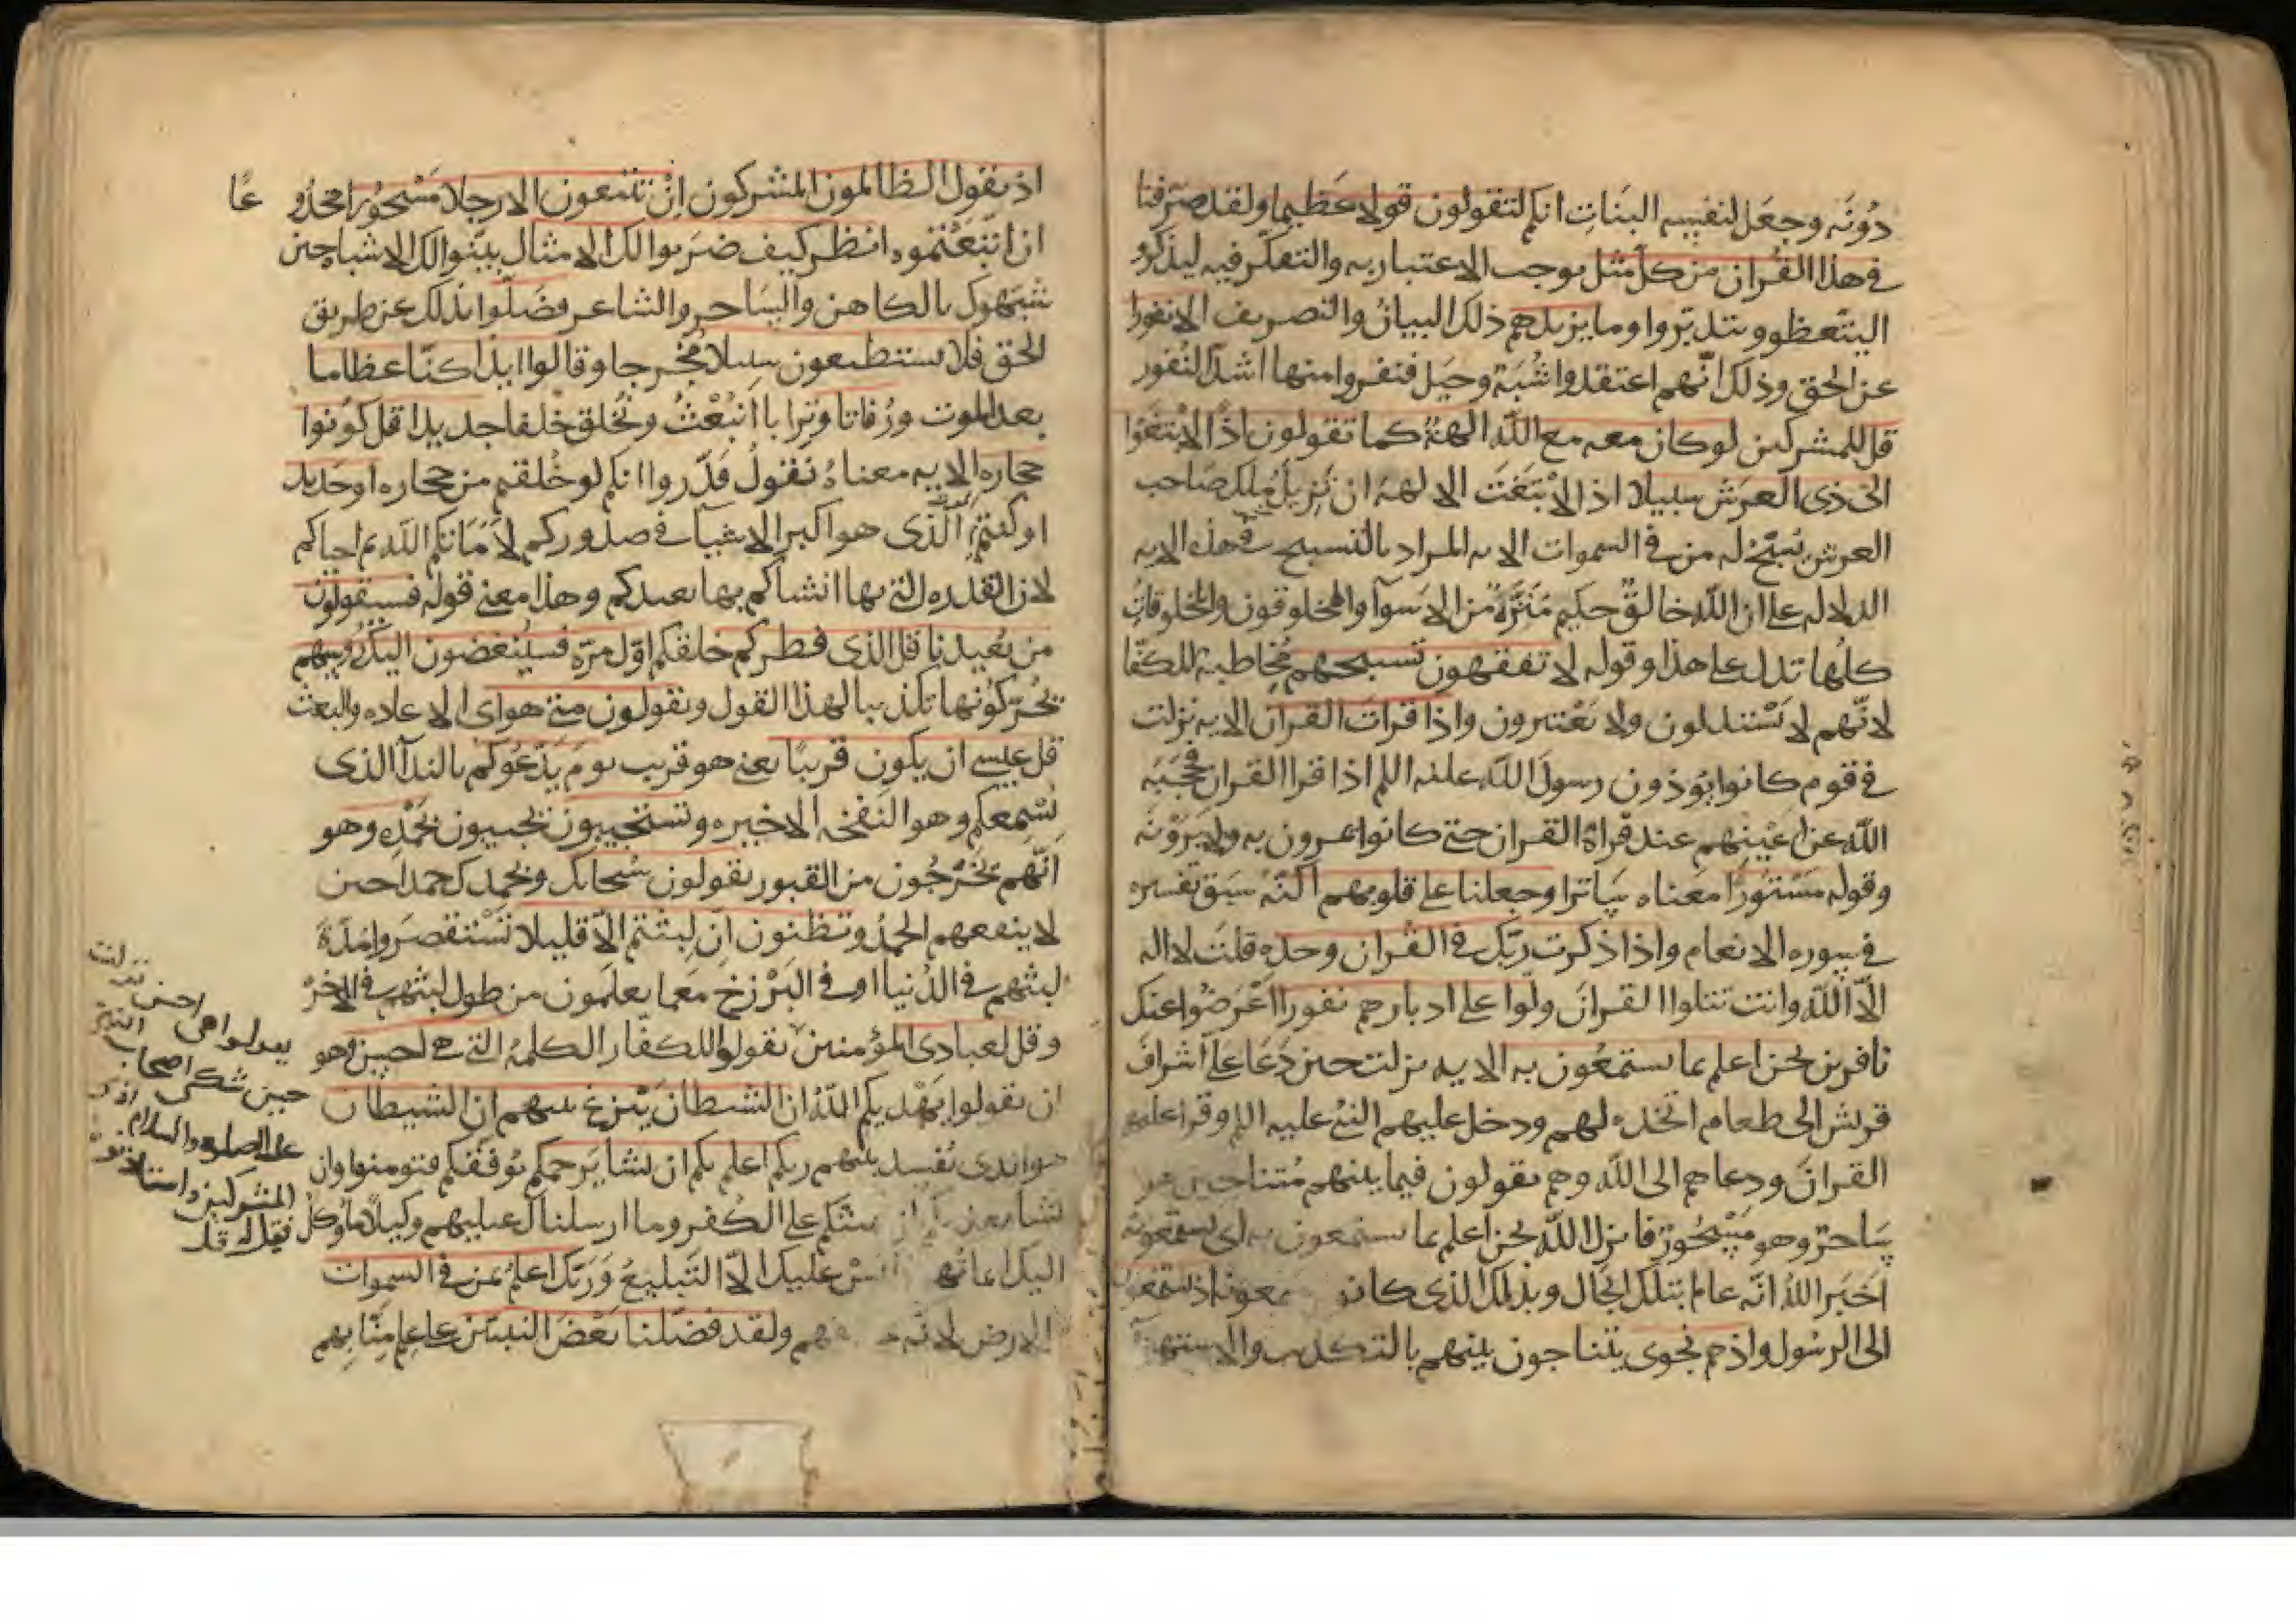 دُونَه وجعَل لنفسِه البنَاتِ انكم لتقولون قولا عَظيما ولقد صَرّفنا
في هذا القُران من كل مَثل يوجب الاعتبار به والتفكّر فيه ليذكروا
ليتّعظوا ويتدبّروا وما يزيدهم ذلك البيانُ والتصريف الا نفورا
عن الحق وذلك انّهم اعتقدوا شُبَهٌ وحيَل فنفروا منها اشدّ النُفور
قل للمشركين لو كان معه مع الله الهةٌ كما تقولون اذًا لابتغَوْا
الى ذي العرَش سبيلا اذا لابْتَغَت الالهة ان تُزيل مُلك صَاحب
العرش تسبّحُ له من في السموات الايه المراد بالتسبيح في هذه الايه
الدلاله على ان الله خالقٌ حكيم مُنَزَّهٌ من الاسوآ والمخلوقون والمخلوقاتُ
كلّها تدل على هذا وقوله لا تفقهون تسبيحهم مُخاطبة للكفّا
لانّهم لا يَسْتدلون ولا يَعْتبرون واذا قراتَ القرآن الايه نزلت
في قوم كانوا يُوذون رسولَ الله عليه اللم اذا قرا القران فحجَبَه
الله عن اعيُنهم عند قراة القران حتى كانوا يمرون به ولا يَرَوْنه
وقوله مَسْتوُرًا معَناه سَاترا وجعلنا على قلوبهم اكنّه سبَق تفسيره
في سوره الانعام واذا ذكرت ربّك في القُران وحده قلتَ لا اله
الّا اللّه وانت تتلوا القرانَ ولّوا على ادبارهم نفورا اعْرَضُوا عنك
نافرين نحن اعلم بما يستمعُون به الايه نزلت حين دَعَا عَلي اشرافَ
قريش الى طعام اتخذه لهم ودخل عليهم النبيُ عليه اللم وقرا عليهم
القرانَ ودعاهم الى اللّه وهم يقولون فيما بينهم مُتناجين هو
سَاحرٌ وهو مَسْحُورٌ فانزل اللّه نحن اعلم بما يستمعون به اي يستمعونه
اَخبَر اللّهُ انّه عالم بتلك الحَال وبذلك الذي كانوا يستمعونه اذ يستمعون
الى الرسُول واذ هم نجوى يتناجون بينهم بالتكذيب والاستهزآ
اذ يقول الظالمون المشركون اِنْ تتبعون الا رجلا مَسْحُورا مخدُو عًا
ان اتّبَعْتموه انظر كيف ضرَبوا لك الامثال بيّنوا لك الاشباه حين
شبّهوك بالكاهن والسَاحر والشاعر فضَلّوا بذلك عن طريق
الحق فلا يستطيعون سبيلا مُخرجا وقالوا ايذا كنّا عظاما
بعد الموت ورُفاتا وترابا انبُعْثُ ونُخلق خلقا جديدا قل كوُنوا
حجاره الايه معناهُ يقولُ قدّروا انكم لو خُلقتم من حجاره او حَديد
او كنتم الّذي هو اكبر الاشيآ في صدوركم لاَمَاتكم اللّه ثم احياكم
لان القدره التي بها انشاكم بها يعيدكم وهذا معنى قوله فسيقولون
من يُعيدنا قل الذي فطركم خلقكم اوّل مرّه فسيُنغضون اليك رُوسهم
يُحرّكوُنها تكذيبا لهذا القول ويقولون متى هو اي الاعاده والبعث
قل عسى ان يكون قريبًا يعني هو قريب يومَ يَدْعُوكم بالندآ الذي
يُسْمِعكم وهو النَفخه الاخيره وتستجيبون تجيبون بحَمْدِه وهو
اَنّهم يَخْرجُون من القبور يقولون سُبحانك وبحمدك حمدا حين
لا ينفعهم الحمدُ وتظنون ان لبثتم الّا قليلا تَسْتقصرَوا مُدّة
لبثهم في الدُنيا او في البَرْزخ مَع ما يعلمون من طول لبثهم في الاخرَه
وقل لعبادي المؤمنين يقولوا للكفّار الكلمة التي هي احسن وهو
ان يقولوا يَهْديكم اللّهُ ان الشيطان يَنْزغ بينهم ان الشيطان
هو الذي يُفسد بينهم ربكم اعلم بكم ان يشا يَرحمكم يُوفّقكم فتومنوا وان
يشا يعذبكم ان يمتكم على الكُفر وما ارسلناك عليهم وكيلا ما وُكل
اليك ايمانُهم ليْسَ عليك الّا التَبليغُ وَرَبّك اعلمُ بمن في السموات
والارض لانه ولقد فضّلنا بَعْضَ النبيّين على علم مِنّا بِهم
نزلت
حين شكى اصحاب النبي
عليه الصلوه والسلام اذى
المشركين واستاذنوه